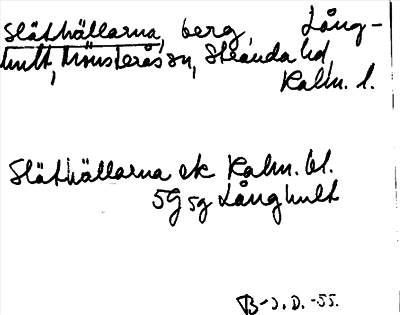 Släthällarna, berg, Lång-
hult, Mönsterås sn, Stranda hd,
Kalm. l.
Släthällarna ek Kalm. bl.
5G 5g Långhult
B-J.D.-55.